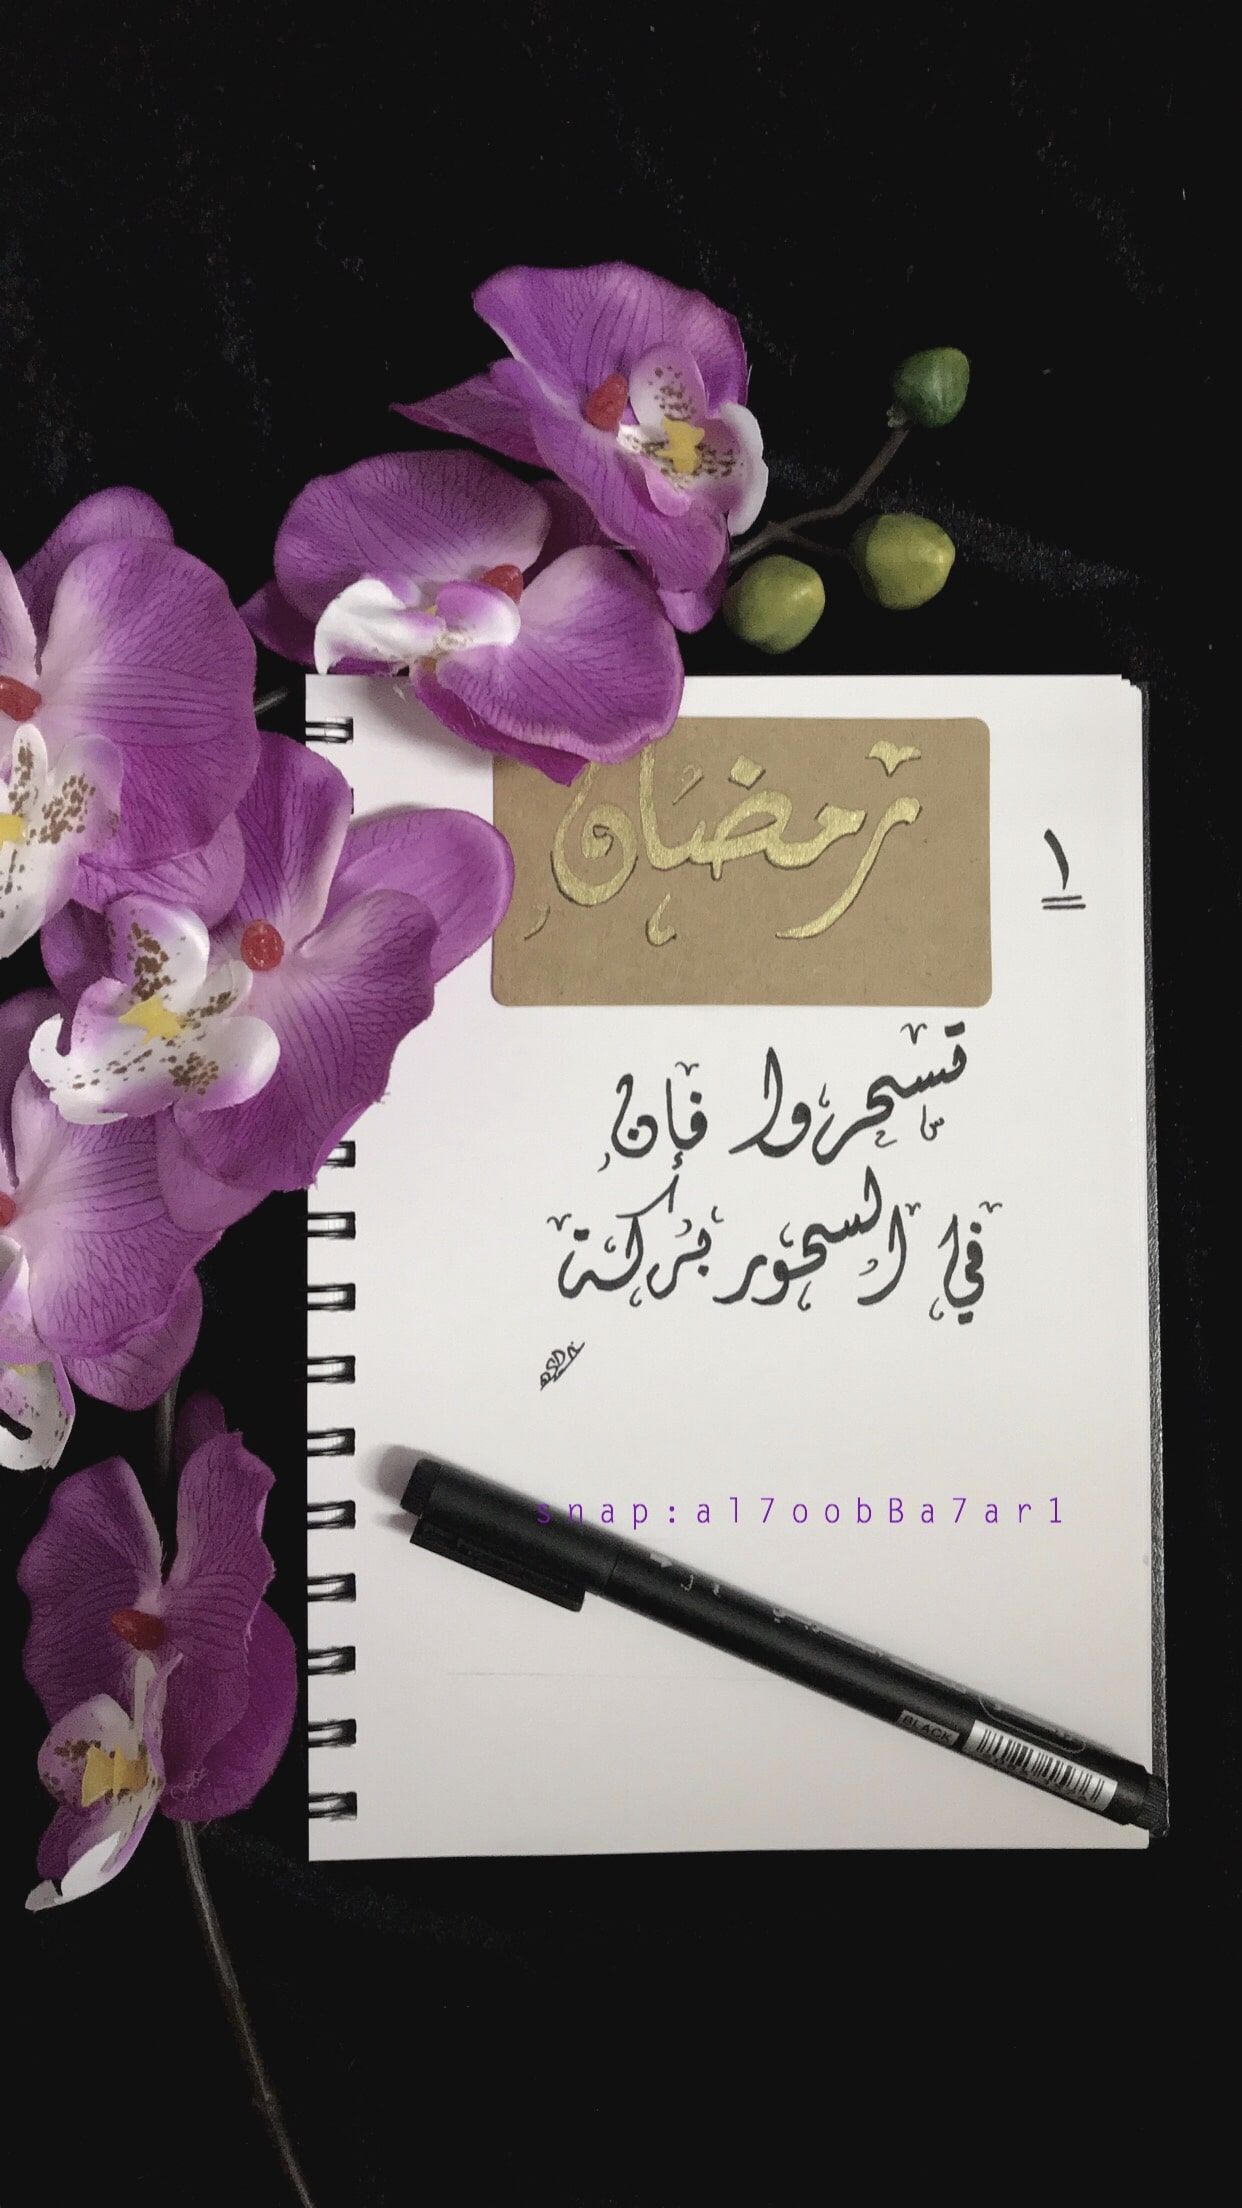 رمضان
١
تسحروا فإن
في السحور بركة
snap:al7oobBa7ar1
BLACK